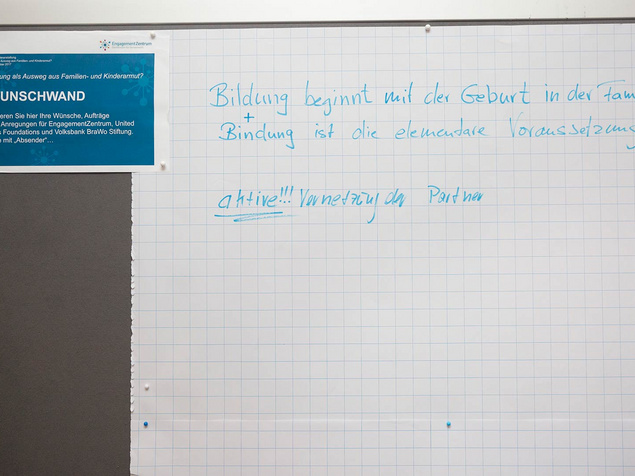 EngagementZentrum
ung als Ausweg aus Familien- und Kinderarmut?
UNSCHWAND
eren Sie hier Ihre Wünsche, Aufträge
Anregungen für EngagementZentrum, United
s Foundations und Volksbank BraWo Stiftung.
e mit „Absender“...
Bildung beginnt mit der Geburt in der Fam
+
Bindung ist die elementare Voraussetzung
aktive!!! Vernetzung der Partner